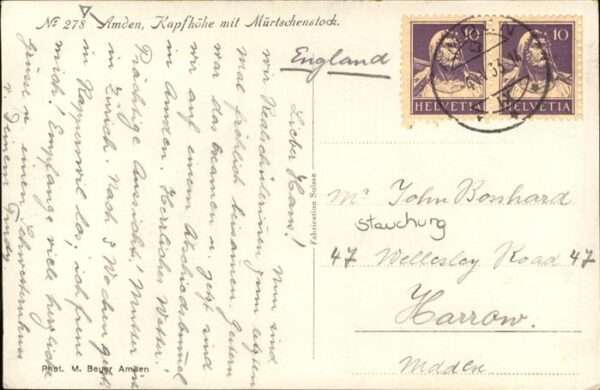 № 278 Amden, Kapfhöhe mit Mürtschenstock.
England
10 10
HELVETIA HELVETIA
Lieber Hans!
Nun sind
wir Realschülerinnen zum letzten
Mal fröhlich beisammen. Gestern
war das Examen u. jetzt sind
wir auf einem Abschiedsbummel
in Amden. Herrliches Wetter!
Prächtige Aussicht! Mutter ist
in Zürich. Nach 3 Wochen geht's
in Rapperswil los; ich freue
mich! Empfange viele herzliche
Grüsse u. einen Schwesternkuss
v. Deinem Trudy
Fabrication Suisse
Mr John Bonhard
Stauchung
47 Wellesley Road 47
Harrow.
Middlex
Phot. M. Beuer Amden